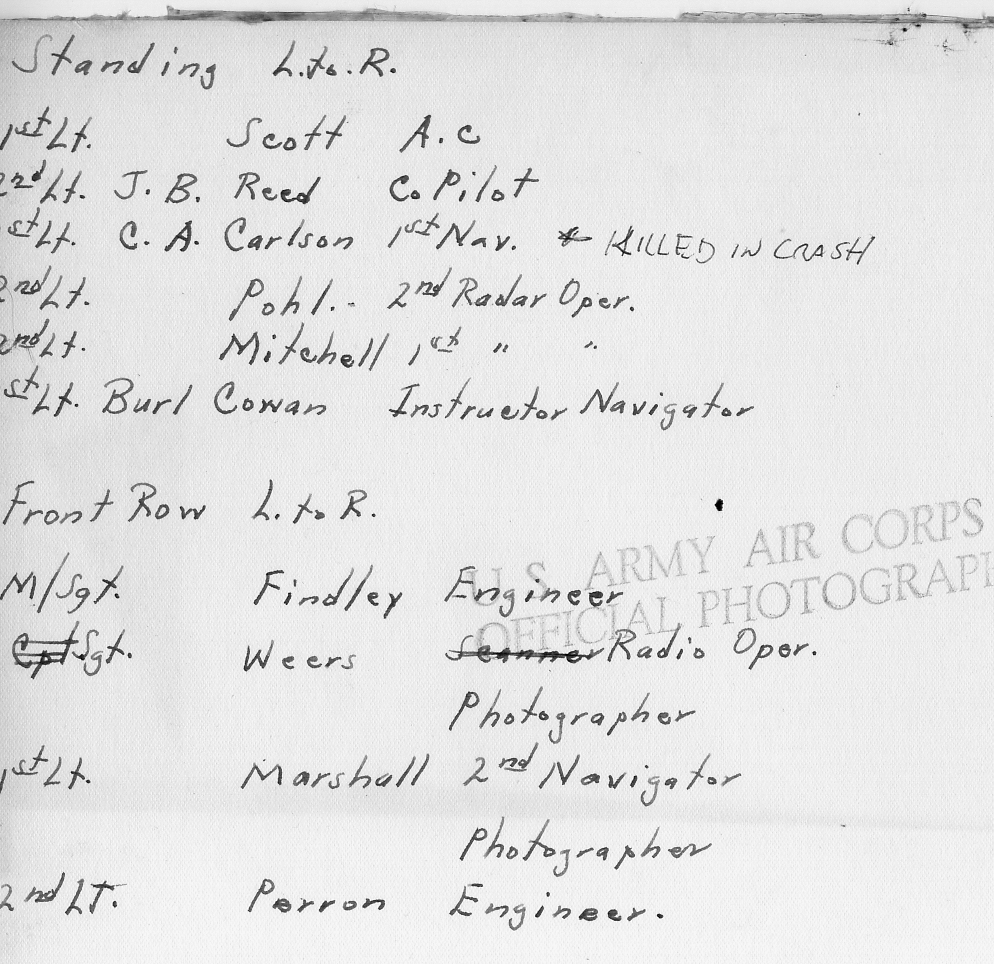 Standing L. to. R.
1st Lt. Scott A.C
2nd Lt. J. B. Reed Co Pilot
st Lt. C. A. Carlson 1st Nav. * KILLED IN CRASH
2nd Lt. Pohl.- 2nd Radar Oper.
2nd Lt. Mitchell 1st " "
st Lt. Burl Cowan Instructor Navigator
Front Row L. to R.
M/Sgt. Findley Engineer
Cpt Sgt. Weers Scanner Radio Oper.
Photographer
1st Lt. Marshall 2nd Navigator
Photographer
2nd LT. Perron Engineer.
U.S. ARMY AIR CORPS
OFFICIAL PHOTOGRAPH